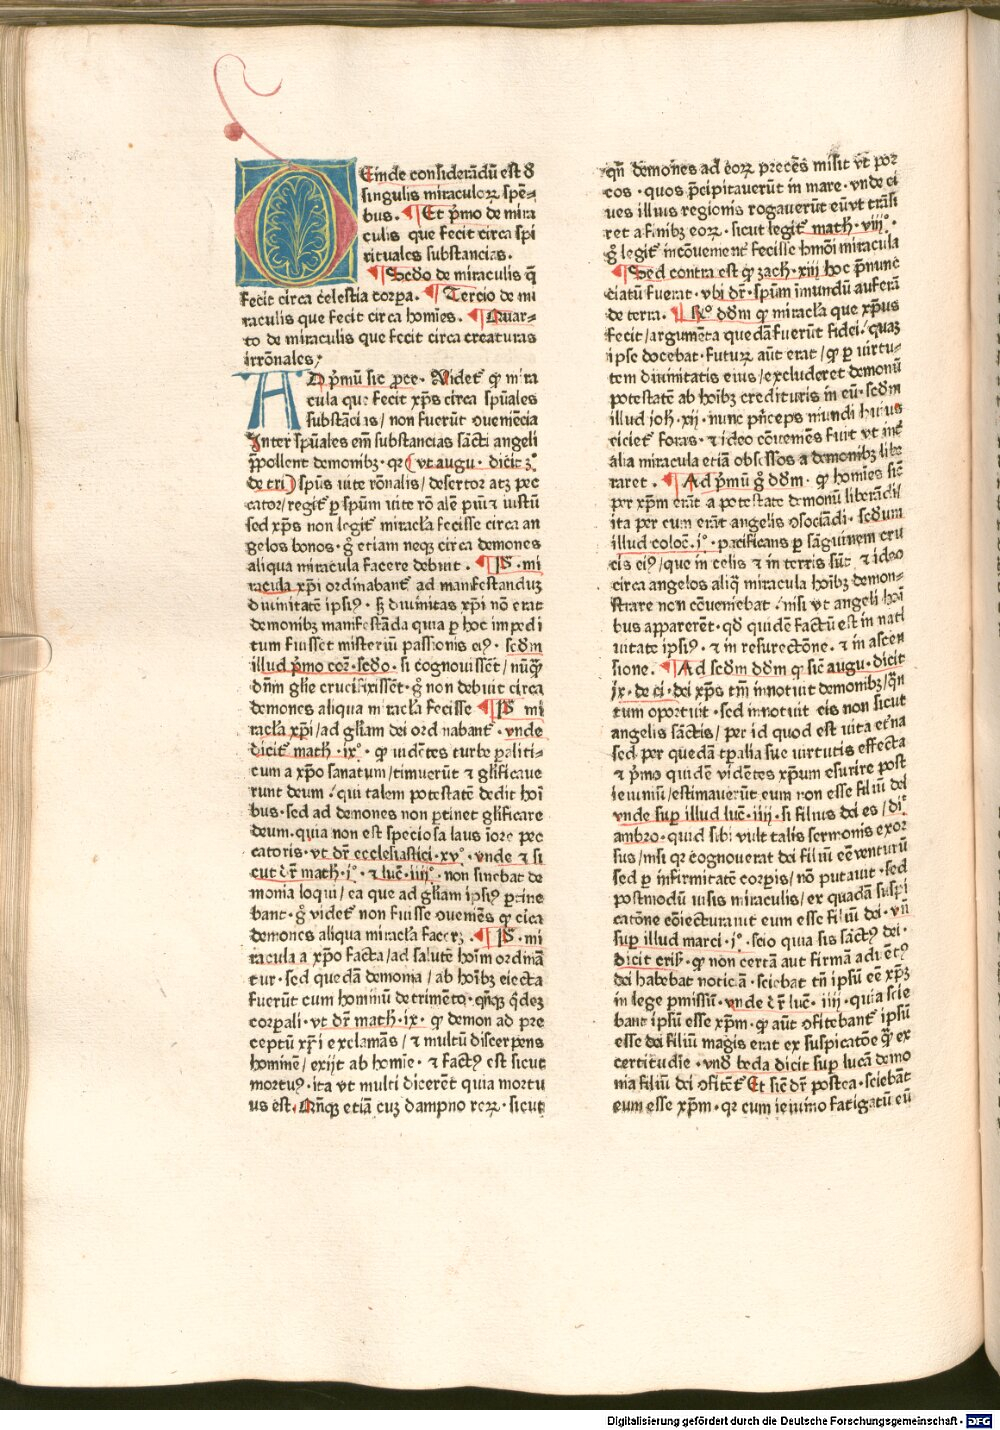 Deinde considerādū est ð
singulis miraculoꝝ spē⸗
bus. ¶ Et p̄mo de mira
culis que fecit circa spi
rituales substancias.
¶ Scd̄o de miraculis q̄
fecit circa celestia corꝑa. ¶ Tercio de mi
raculis que fecit circa hom̄es. ¶ Quar⸗
to de miraculis que fecit circa creaturas
irrōnales.
AD p̄mū sic ꝓce. Videt᷑ ꝙ mira
cula que fecit xp̄s circa spūales
substācias / non fuerūt ꝯueniēcia
Inter spūales em̄ substancias sācti angeli
p̄pollent demonibꝫ. qꝛ (vt augu. dicit 3°.
de tri) spūs vite rōnalis / desertor atꝫ pec
cator / regit᷑ ꝑ spūm vite rō alē piū ⁊ iustū
sed xp̄s non legit᷑ miracl̄a fecisse circa an
gelos bonos. g̊ etiam neqꝫ circa demones
aliqua miracula facere debuit. ¶ P̄. mi
racula xp̄i ordinabant᷑ ad manifestanduꝫ
diuinitatē ipsiꝰ. sꝫ diuinitas xp̄i nō erat
demonibꝫ manifestāda quia ꝑ hoc impedi
tum fuisset misteriū passionis eiꝰ. scd̄m
illud p̄mo coꝝ. scd̄o. si cognouissēt / nūqᷓꝫ
dn̄m gl̄ie crucifixissēt. g̊ non debuit circa
demones aliqua miracl̄a fecisse ¶ P̄ mi
racl̄a xp̄i / ad gl̄iam dei ordinabant᷑. vnde
dicit᷑ math. ix°. ꝙ vidētes turbe ꝑaliti⸗
cum a xp̄o sanatum / timuerūt ⁊ gl̄ificaue
runt deum. qui talem potestatē dedit hoī
bus. sed ad demones non ꝑtinet gl̄ificare
deum. quia non est speciosa laus ī ore pec
catoris. vt dr̄ ecclesiastici. xv°. vnde ⁊ si
cut dr̄ math. j°. ⁊ luc̄. iiij°. non sinebat de
monia loqui / ea que ad gl̄iam ipsiꝰ ꝑtine
bant. g̊ videt᷑ non fuisse ꝯueniēs ꝙ circa
demones aliqua miracl̄a facerꝫ. ¶ P̄. mi
racula a xp̄o facta / ad salutē hoīm ordinā
tur. sed quedā demonia / ab hoībꝫ eiecta
fuerūt cum hominū detrimēto. qn̄qꝫ q̇deꝫ
corꝑali. vt dr̄ math. ix. ꝙ demon ad pre
ceptū xp̄i exclamās / ⁊ multū discerpens
hominē / exijt ab homīe. ⁊ factꝰ est sicut
mortuꝰ. ita vt multi dicerēt quia mortu
us est. Qn̄qꝫ etiā cuꝫ dampno reꝝ. sicut
qn̄ demones ad eoꝝ precēs misit vt por
cos. quos p̄cipitauerūt in mare. vnde ci
ues illius regionis rogauerūt eū vt trāsi
ret a finibꝫ eoꝝ. sicut legit᷑ math. viij°.
g̊ legit᷑ incōueniēt᷑ fecisse hm̄oi miracula
¶ Sed contra est ꝙ zach. xiij hoc p̄nunc
ciatū fuerat. vbi dr̄. spūm īmundū auferā
de terra. ¶ R°. dd̄m ꝙ miracl̄a que xp̄us
fecit / argumēta quedā fuerūt fidei / quaꝫ
ipse docebat. futuꝝ aūt erat / ꝙ ꝑ virtu⸗
tem diuinitatis eius / excluderet demonū
potestatē ab hoībꝫ credituris in eū. scd̄m
illud joh. xij. nunc pn̄ceps mūndi huius
eiciet᷑ foras. ⁊ ideo cōueniēs fuit vt int̄
alia miracula etiā obsessos a demonibꝫ libe
raret. ¶ Ad p̄mū g̊ dd̄m. ꝙ homīes sic̄
per xp̄m erāt a potestate demonū liberādi
ita per eum erāt angelis ꝯsociādi. scd̄um
illud coloc̄. j°. pacificans ꝑ sāguinem cru
cis eiꝰ / que in celis ⁊ in terris sūt ⁊ ideo
circa angelos aliq̄ miracula hoībꝫ demon⸗
strare non cōueniebat / nisi vt angeli hoī
bus apparerēt. qd̄ quidē factū est in nati
uitate ipsiꝰ. ⁊ in resurectōne. ⁊ in ascen
sione. ¶ Ad scd̄m dd̄m ꝙ sic̄ augu. dicit
ix. de ci. dei xp̄s tm̄ innotuit demonibꝫ / qn̄
tum oportuit. sed innotuit eis non sicut
angelis sāctis / per id quod est vita et̄na
sed per quedā tꝑalia sue virtutis effecta
⁊ p̄mo quidē vidētes xp̄um esurire post
ieiuniū / estimauerūt eum non esse filiū dei
vnde suꝑ illud luc̄. iiij. si filius dei es / di°
ambro. quid sibi vult talis sermonis exor
sus / nisi qꝛ cognouerat dei filiū eē venturū
sed ꝑ infirmitatē corꝑis / nō putauit. sed
postmodū visis miraculis / ex quadā suspi
catōne cōiecturauit eum esse filiū dei. vn̄
suꝑ illud marci. j°. scio quia sis sāctꝰ dei.
dicit crisꝰ. ꝙ non certā aut firmā aduētꝰ
dei habebat noticiā. sciebat tn̄ ipsū eē xp̄ꝫ
in lege ꝓmissū. vnde dr̄ luc̄. iiij. quia scie
bant ipsū esse xp̄m. ꝙ aūt ꝯfitebant᷑ ipsū
esse dei filiū magis erat ex suspicatōe qᷓꝫ ex
certitudīe. vnd̄ beda dicit suꝑ lucā demo
nia filiū dei ꝯfitēt᷑ Et sic̄ dr̄ postea. sciebāt
eum esse xp̄m. qꝛ cum ieiunio fatigatū eū
Digitalisierung gefördert durch die Deutsche Forschungsgemeinschaft - DFG